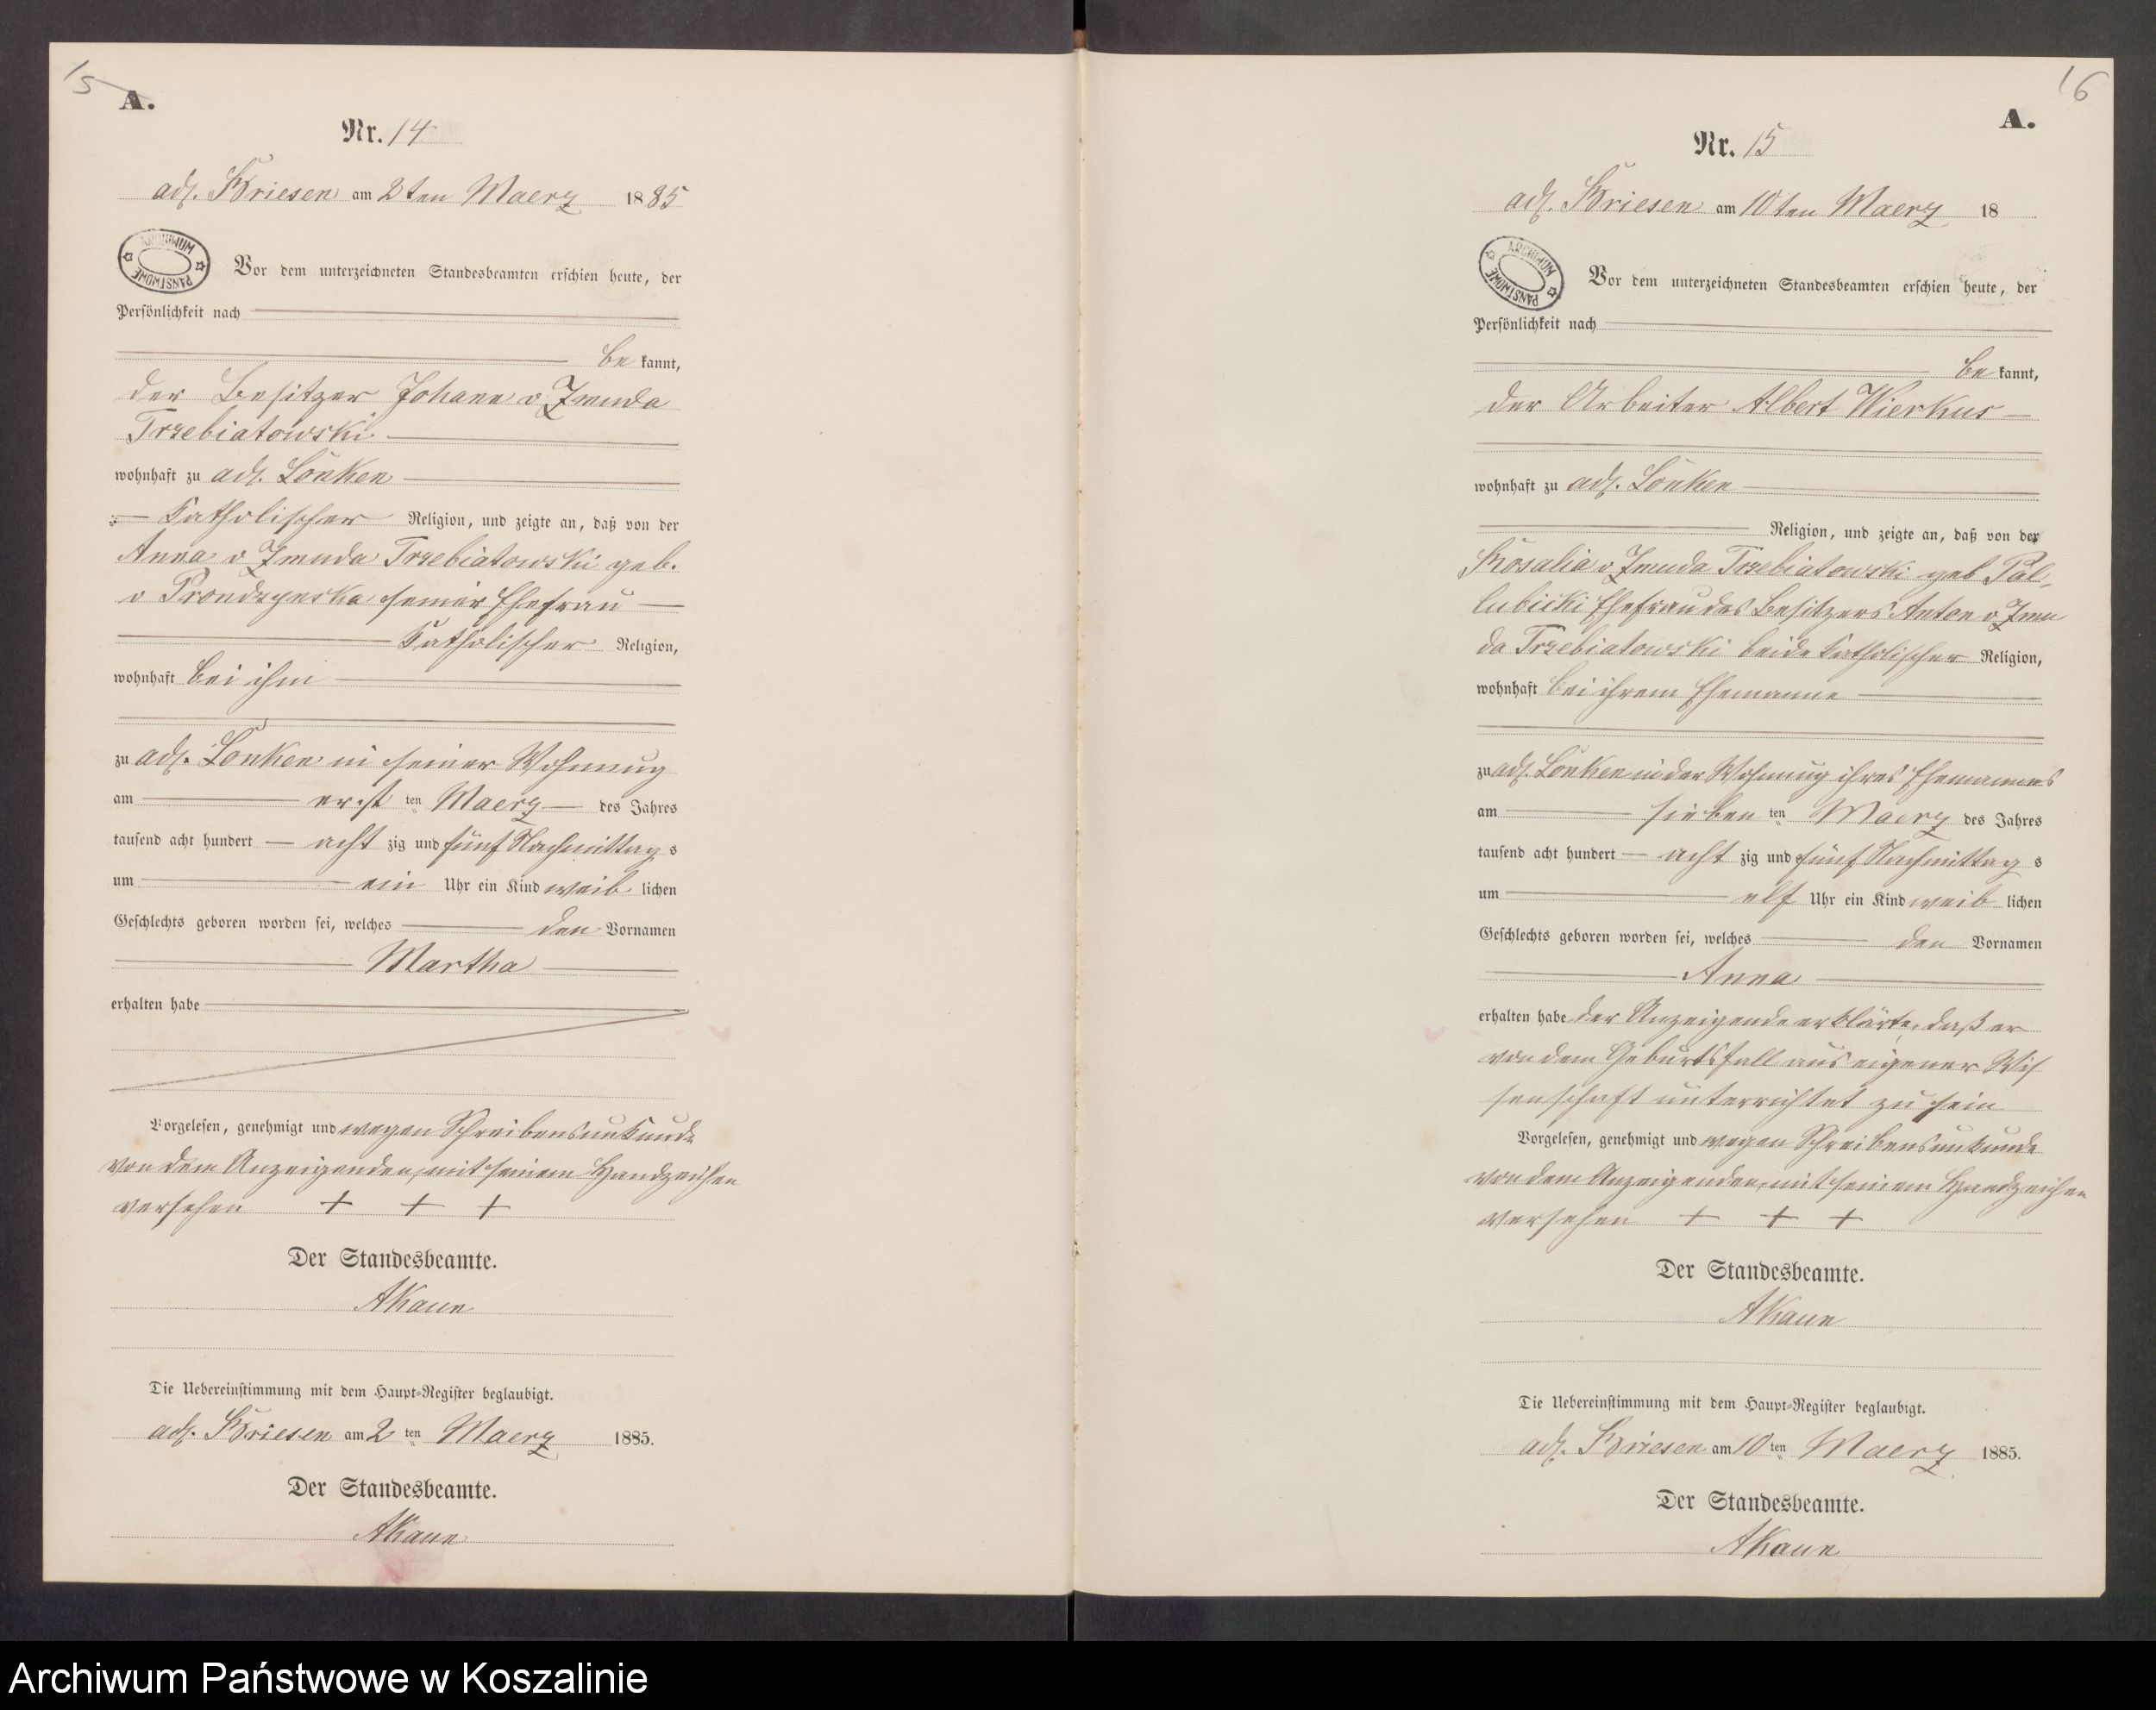 15
A.
Nr. 14
adl. Briesen am 2ten Maerz 1885
ARCHIWUM PAŃSTWOWE
Vor dem unterzeichneten Standesbeamten erschien heute, der
Persönlichkeit nach
be kannt,
der Besitzer Johann v Zmuda
Trzebiatowski
wohnhaft zu adl. Lonken
Katholischer Religion, und zeigte an, daß von der
Anna v Zmuda Trzebiatowski geb.
v Prondzynska seiner Ehefrau
Katholischer Religion,
wohnhaft bei ihm
zu adl. Lonken in seiner Wohnung
am erst ten Maerz des Jahres
tausend acht hundert acht zig und fünf Nachmittag s
um ein Uhr ein Kind weib lichen
Geschlechts geboren worden sei, welches den Vornamen
Martha
erhalten habe
Vorgelesen, genehmigt und wegen Schreibensunkunde
von dem Anzeigenden mit seinem Handzeichen
versehen + + +
Der Standesbeamte.
AKaun
Die Uebereinstimmung mit dem Haupt-Register beglaubigt.
adl. Briesen am 2 ten Maerz 1885.
Der Standesbeamte.
AKaun
16
A.
Nr. 15
adl. Briesen am 10ten Maerz 18
ARCHIWUM PAŃSTWOWE
Vor dem unterzeichneten Standesbeamten erschien heute, der
Persönlichkeit nach
be kannt,
der Arbeiter Albert Wierkus
wohnhaft zu adl. Lonken
Religion, und zeigte an, daß von der
Rosalia v Zmuda Trzebiatowski geb Pal-
lubicki Ehefrau des Besitzers Anton v Zmu
da Trzebiatowski beide katholischer Religion,
wohnhaft bei ihrem Ehemanne
zu adl. Lonken in der Wohnung ihres Ehemannes
am sieben ten Maerz des Jahres
tausend acht hundert acht zig und fünf Nachmittag s
um elf Uhr ein Kind weib lichen
Geschlechts geboren worden sei, welches den Vornamen
Anna
erhalten habe der Anzeigende erklärte, daß er
von dem Geburtsfall aus eigener Wis
senschaft unterrichtet zu sein
Vorgelesen, genehmigt und wegen Schreibensunkunde
von dem Anzeigenden mit seinem Handzeichen
versehen + + +
Der Standesbeamte.
AKaun
Die Uebereinstimmung mit dem Haupt-Register beglaubigt.
adl. Briesen am 10 ten Maerz 1885.
Der Standesbeamte.
AKaun
Archiwum Państwowe w Koszalinie